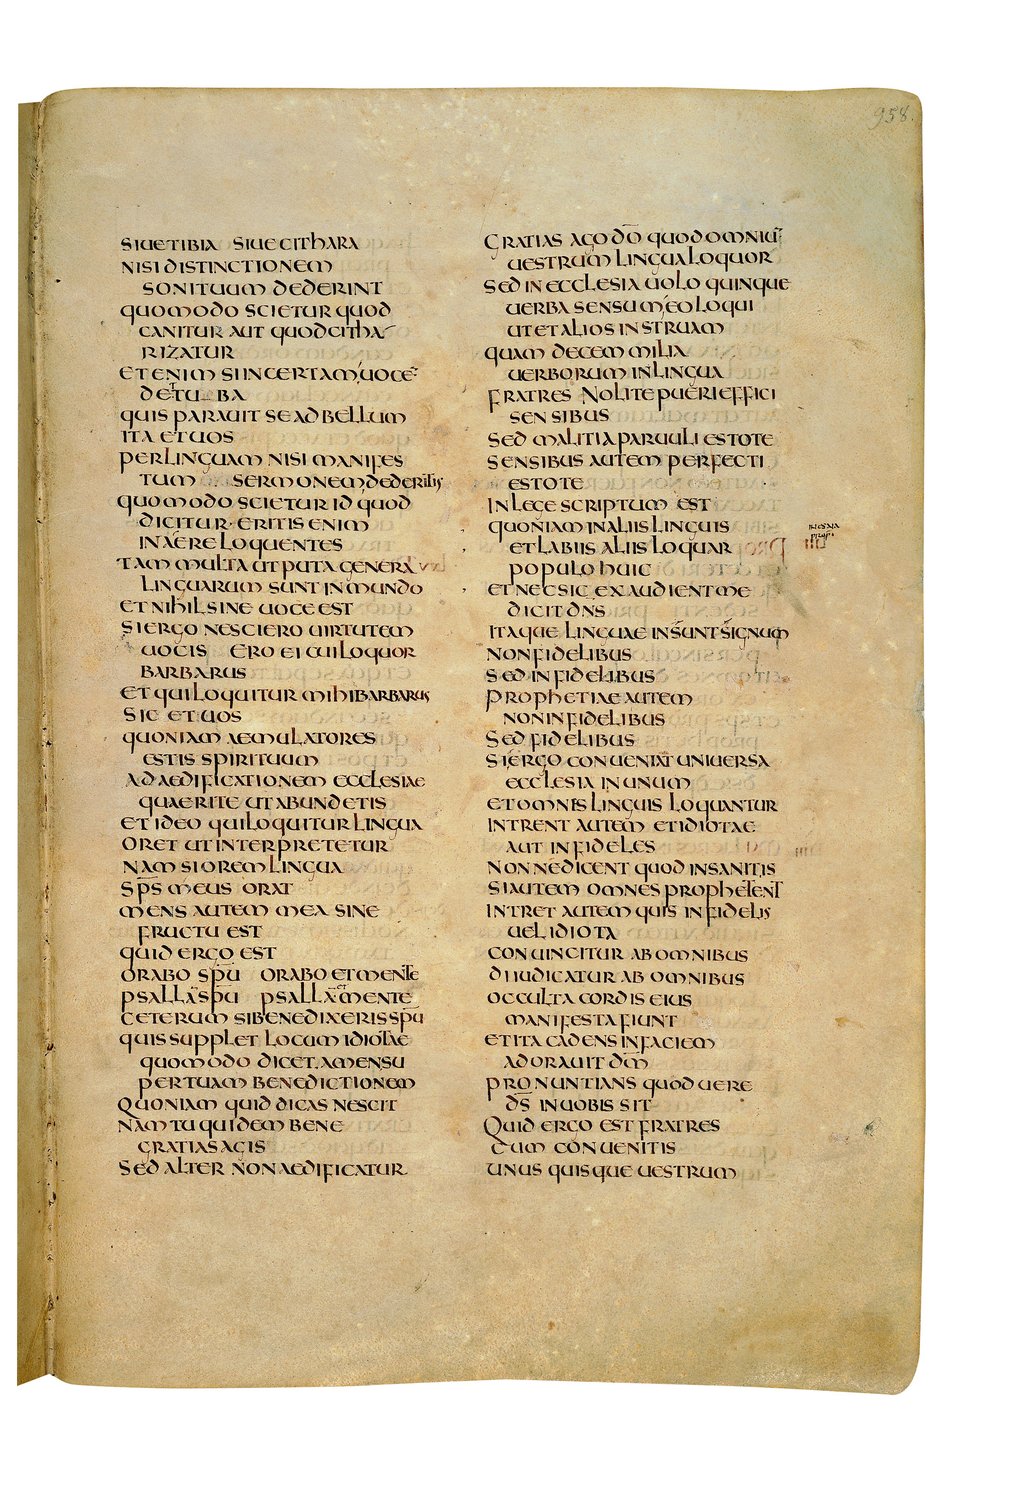 958.
SIUE TIBIA SIUE CITHARA
NISI DISTINCTIONEM
SONITUUM DEDERINT
QUOMODO SCIETUR QUOD
CANITUR AUT QUOD CITHA
RIZATUR
ETENIM SI INCERTAM UOCE
DET TUBA
QUIS PARAUIT SE AD BELLUM
ITA ET UOS
PER LINGUAM NISI MANIFES
TUM SERMONEM DEDERITIS
QUOMODO SCIETUR ID QUOD
DICITUR · ERITIS ENIM
IN AERE LOQUENTES
TAM MULTA UT PUTA GENERA
LINGUARUM SUNT IN MUNDO
ET NIHIL SINE UOCE EST
SI ERGO NESCIERO UIRTUTEM
UOCIS ERO EI CUI LOQUOR
BARBARUS
ET QUI LOQUITUR MIHI BARBARUS
SIC ET UOS
QUONIAM AEMULATORES
ESTIS SPIRITUUM
AD AEDIFICATIONEM ECCLESIAE
QUAERITE UT ABUNDETIS
ET IDEO QUI LOQUITUR LINGUA
ORET UT INTERPRETETUR
NAM SI OREM LINGUA
SP̅S MEUS ORAT
MENS AUTEM MEA SINE
FRUCTU EST
QUID ERGO EST
ORABO SP̅U ORABO ET MENTE
PSALLA̅ SP̅U PSALLA̅ ET MENTE
CETERUM SI BENEDIXERIS SP̅U
QUIS SUPPLET LOCUM IDIOTAE
QUOMODO DICET AMEN SU
PER TUAM BENEDICTIONEM
QUONIAM QUID DICAS NESCIT
NAM TU QUIDEM BENE
GRATIAS AGIS
SED ALTER NON AEDIFICATUR
GRATIAS AGO D̅O QUOD OMNIU̅
UESTRUM LINGUA LOQUOR
SED IN ECCLESIA UOLO QUINQUE
UERBA SENSU MEO LOQUI
UT ET ALIOS INSTRUAM
QUAM DECEM MILIA
UERBORUM IN LINGUA
FRATRES NOLITE PUERI EFFICI
SENSIBUS
SED MALITIA PARUULI ESTOTE
SENSIBUS AUTEM PERFECTI
ESTOTE
IN LEGE SCRIPTUM EST
QUONIAM IN ALIIS LINGUIS
ET LABIIS ALIIS LOQUAR
POPULO HUIC
ET NEC SIC EXAUDIENT ME
DICIT D̅N̅S
ITAQUE LINGUAE IN S̅ SUNT SIGNUM
NON FIDELIBUS
SED INFIDELIBUS
PROPHETIAE AUTEM
NON INFIDELIBUS
SED FIDELIBUS
SI ERGO CONUENIAT UNIUERSA
ECCLESIA IN UNUM
ET OMNES LINGUIS LOQUANTUR
INTRENT AUTEM ET IDIOTAE
AUT INFIDELES
NONNE DICENT QUOD INSANITIS
SI AUTEM OMNES PROPHETENT
INTRET AUTEM QUIS INFIDELIS
UEL IDIOTA
CONUINCITUR AB OMNIBUS
DIIUDICATUR AB OMNIBUS
OCCULTA CORDIS EIUS
MANIFESTA FIUNT
ET ITA CADENS IN FACIEM
ADORAUIT D̅M
PRONUNTIANS QUOD UERE
D̅S IN UOBIS SIT
QUID ERGO EST FRATRES
CUM CONUENITIS
UNUS QUISQUE UESTRUM